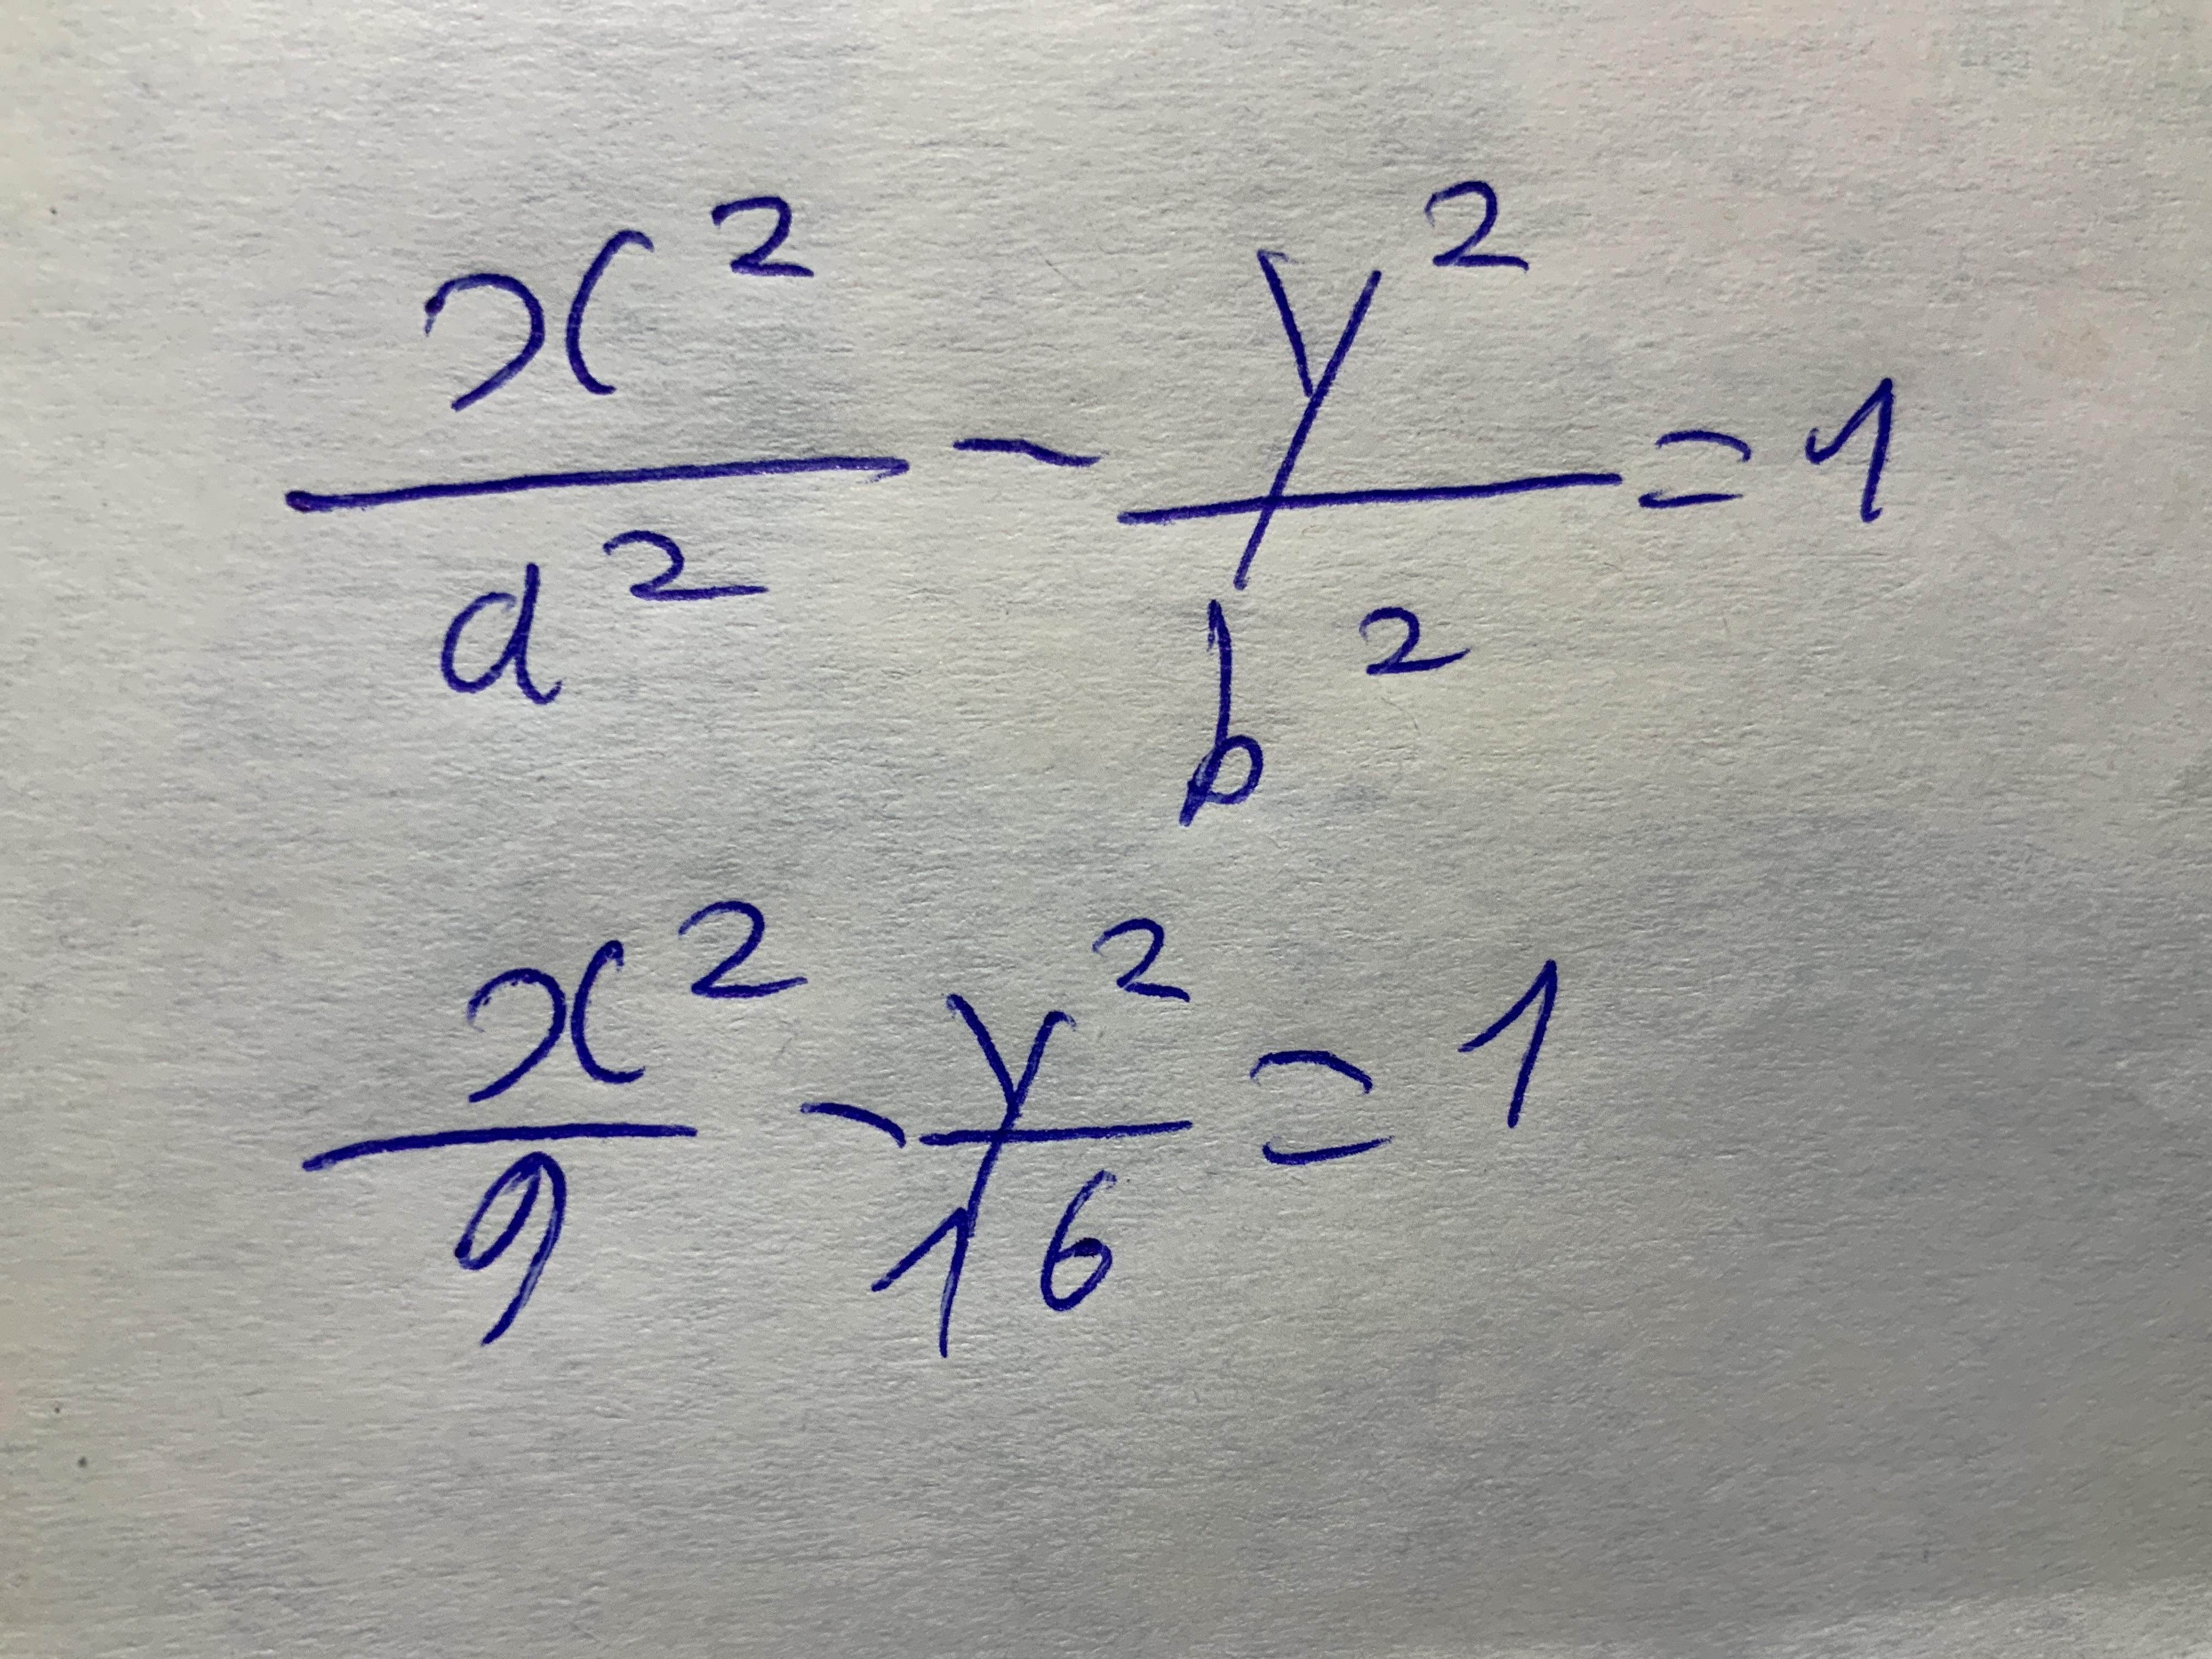 x²/a² - y²/b² = 1
x²/9 - y²/16 = 1